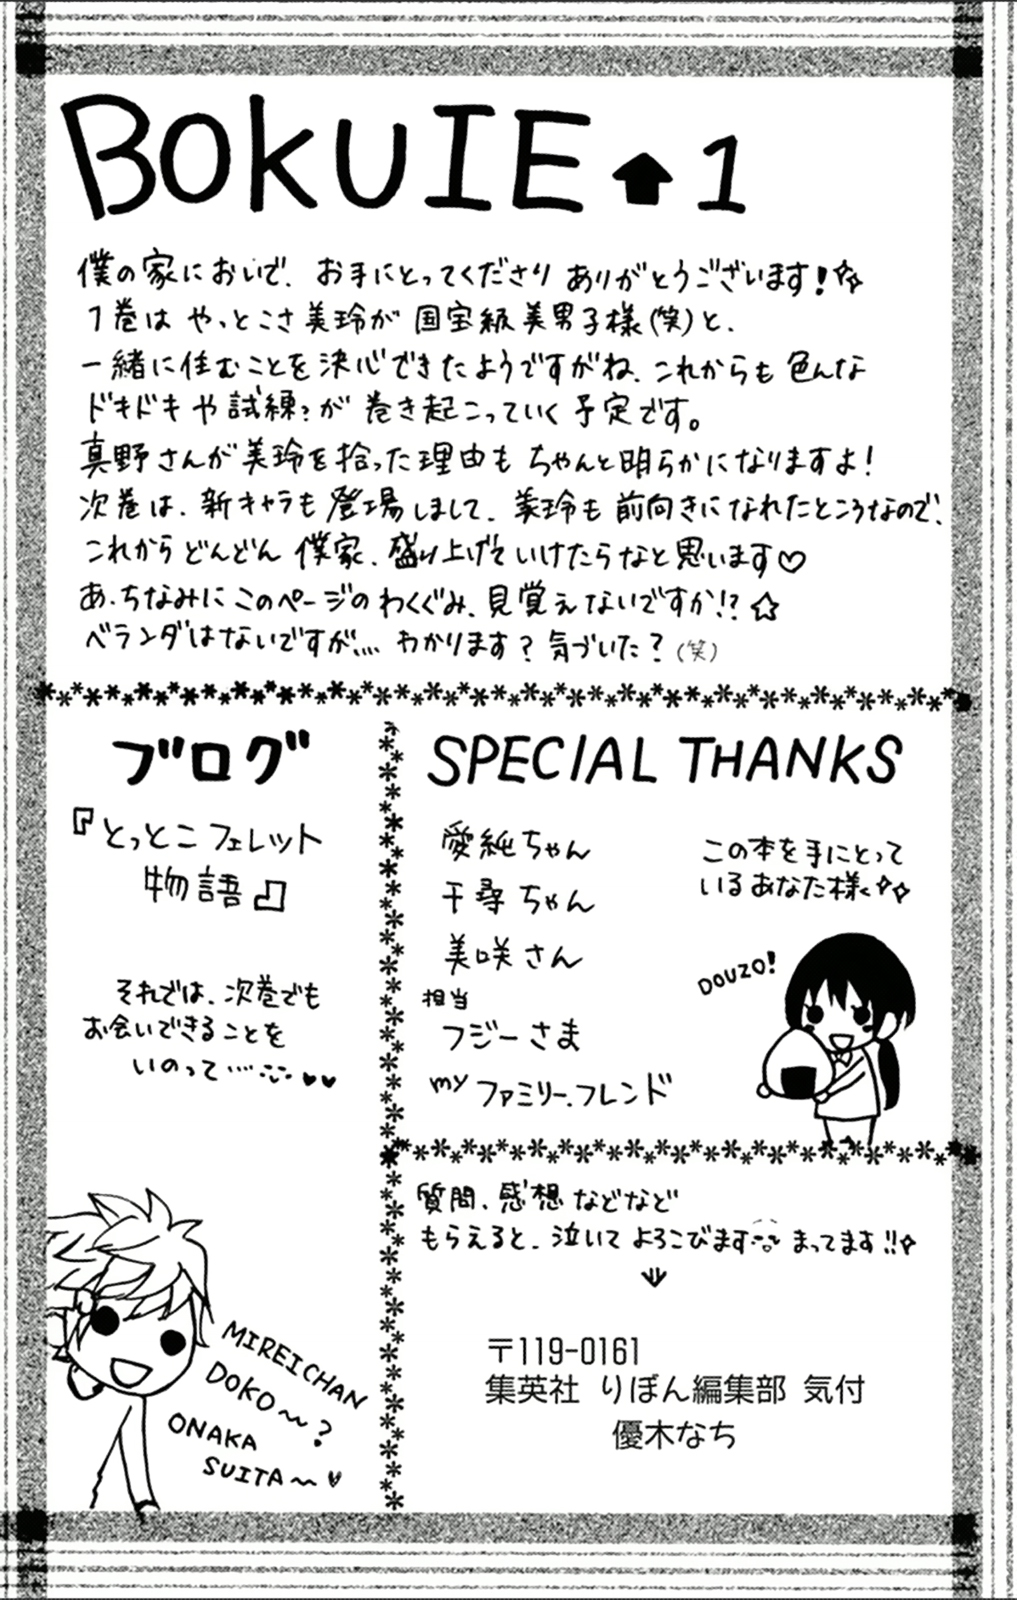 BOKUIE ⬆ 1
僕の家においで、お手にとってくださりありがとうございます!☆
1巻は やっとこさ美玲が 国宝級美男子様(笑)と、
一緒に住むことを決心できたようですがね、これからも色んな
ドキドキや試練?が 巻き起こっていく予定です。
真野さんが美玲を拾った理由も ちゃんと明らかになりますよ!
次巻は、新キャラも登場しまして、美玲も前向きになれたところなので、
これからどんどん 僕家、盛り上げていけたらなと思います♡
あ、ちなみにこのページのわくぐみ、見覚えないですか!?☆
ベランダはないですが、... わかります?気づいた?(笑)
ブログ
『とっとこフェレット
物語』
それでは、次巻でも
お会いできることを
いのって…
SPECIAL THANKS
愛純ちゃん
千尋ちゃん
美咲さん
担当
フジーさま
my ファミリー、フレンド
この本を手にとって
いるあなた様
DOUZO!
質問、感想などなど
もらえると、泣いてよろこびます まってます!!
〒119-0161
集英社 りぼん編集部 気付
優木なち
MIREICHAN
DOKO〜?
ONAKA
SUITA〜